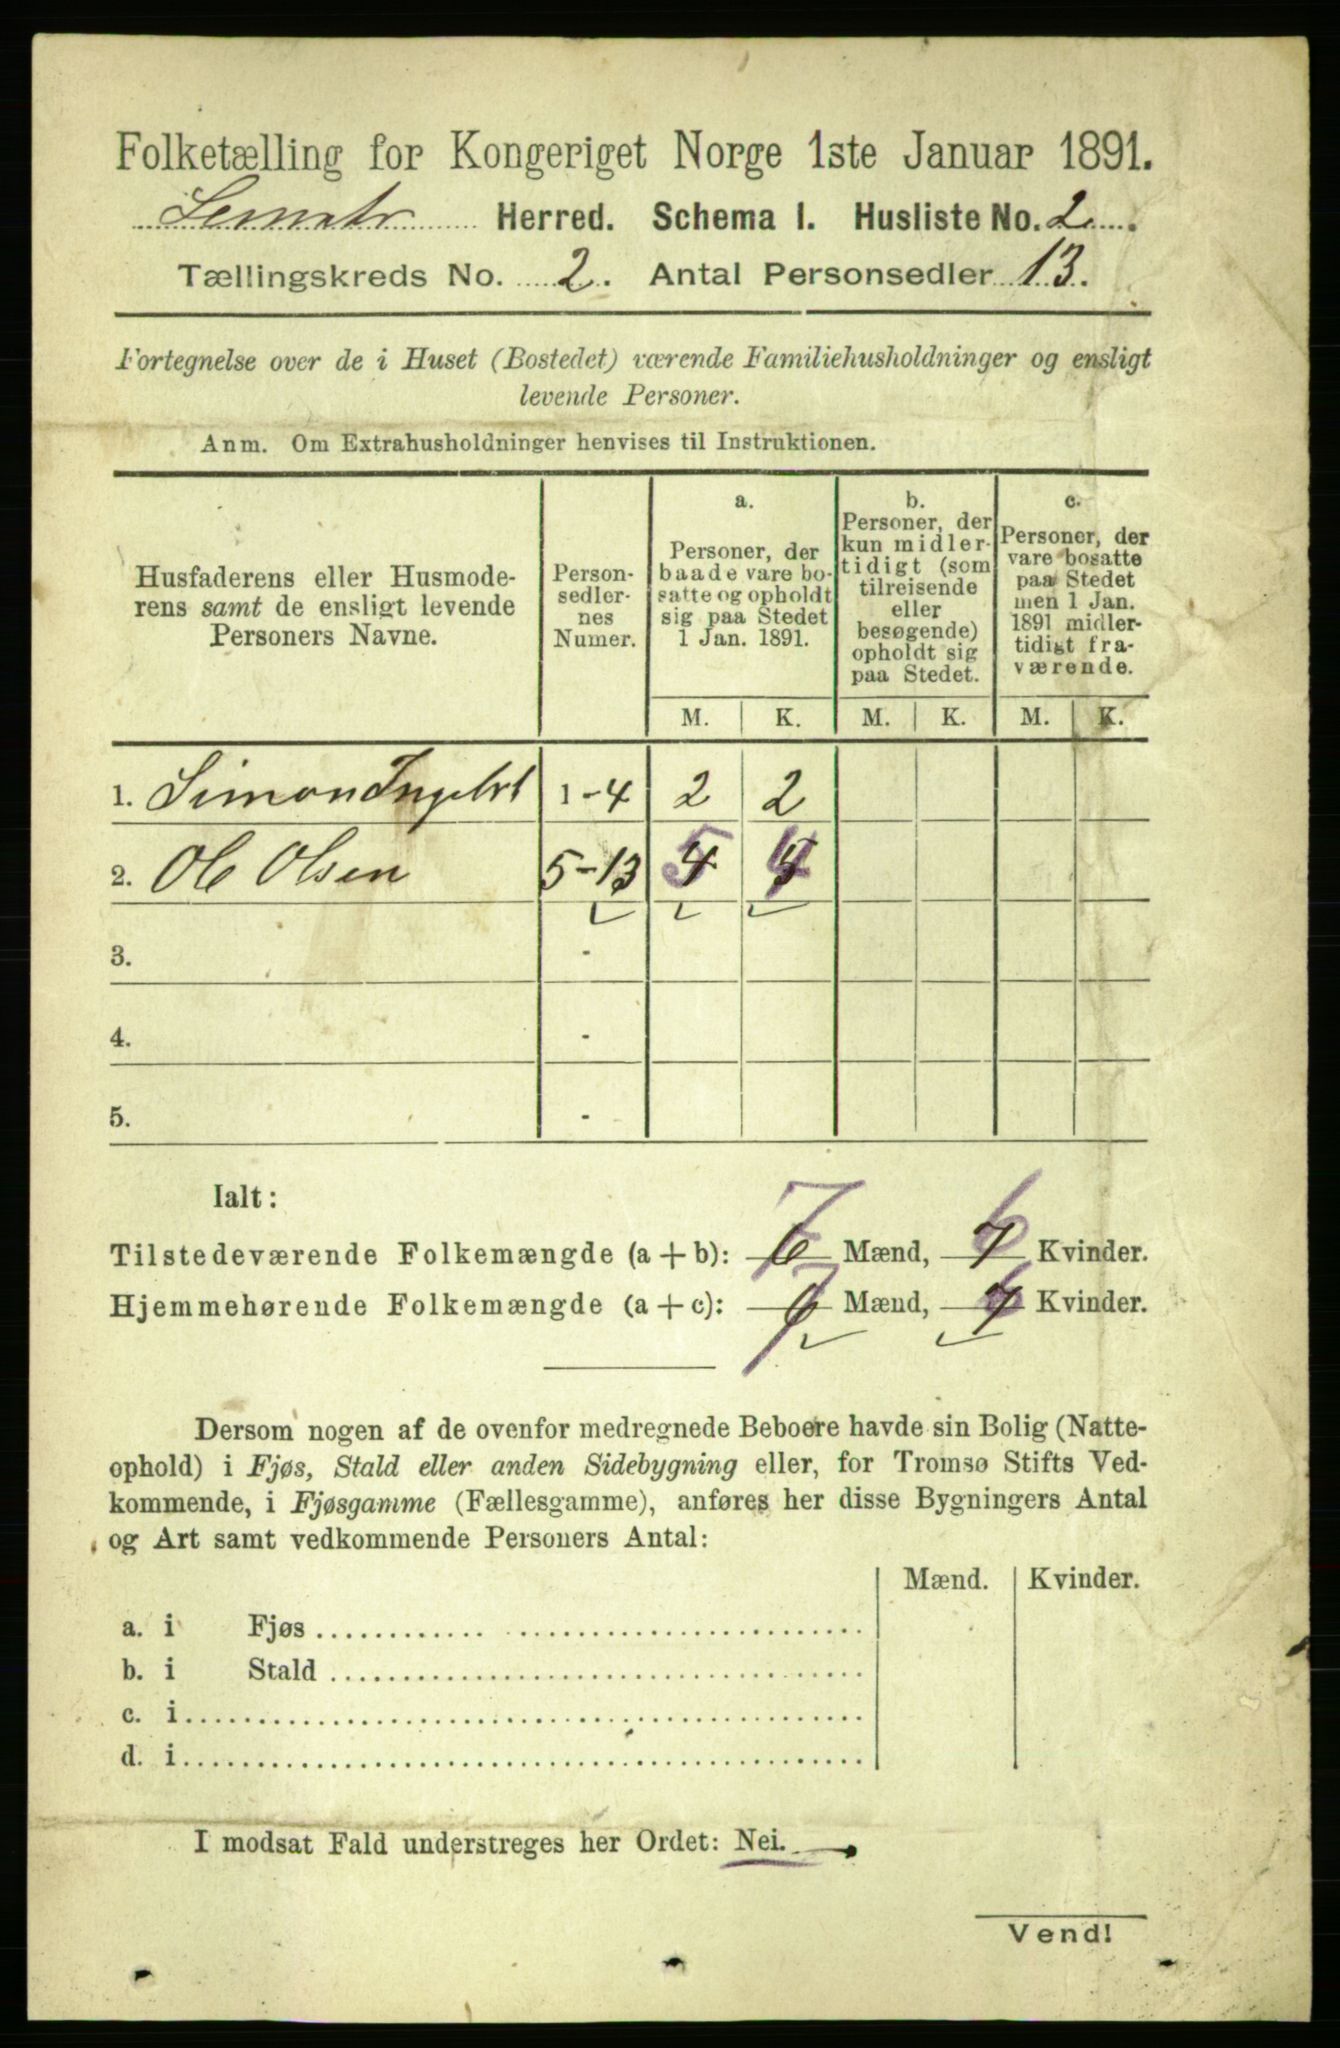 Folketælling for Kongeriget Norge 1ste Januar 1891.
Herred. Schema I. Husliste No. 2.
Tællingskreds No. 2. Antal Personsedler 13.
Fortegnelse over de i Huset (Bostedet) værende Familiehusholdninger og ensligt
levende Personer.
Anm. Om Extrahusholdninger henvises til Instruktionen.
Husfaderens eller Husmode-
rens samt de ensligt levende
Personers Navne.
Person-
sedler-
nes
Numer.
a.
Personer, der
baade vare bo-
satte og opholdt
sig paa Stedet
1 Jan. 1891.
b.
Personer, der
kun midler-
tidigt (som
tilreisende
eller
besøgende)
opholdt sig
paa Stedet.
c.
Personer, der
vare bosatte
paa Stedet
men 1 Jan.
1891 midler-
tidigt fra-
værende.
M. K. M. K. M. K.
1. Simon 1-4 2 2
2. Ole Olsen 5-13 4 5 5 4
3. -
4. -
5. -
Ialt:
Tilstedeværende Folkemængde (a + b): 6 7 Mænd, 7 6 Kvinder.
Hjemmehørende Folkemængde (a + c): 6 7 Mænd, 7 6 Kvinder.
Dersom nogen af de ovenfor medregnede Beboere havde sin Bolig (Natte-
ophold) i Fjøs, Stald eller anden Sidebygning eller, for Tromsø Stifts Ved-
kommende, i Fjøsgamme (Fællesgamme), anføres her disse Bygningers Antal
og Art samt vedkommende Personers Antal:
Mænd. Kvinder.
a. i Fjøs
b. i Stald
c. i
d. i
I modsat Fald understreges her Ordet: Nei.
Vend!